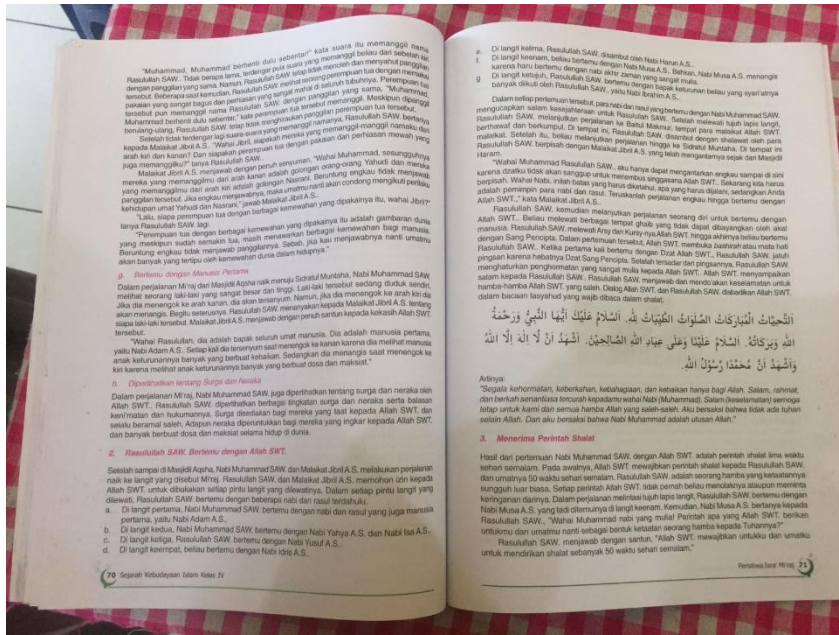 "Muhammad, Muhammad berhenti dulu sebentar!" kata suara itu memanggil nama
Rasulullah SAW.. Tidak berapa lama, terdengar pula suara yang memanggil beliau dari sebelah kiri
dengan panggilan yang sama. Namun, Rasulullah SAW. tetap tidak menoleh dan menyahut panggilan
tersebut. Beberapa saat kemudian, Rasulullah SAW. melihat seorang perempuan tua dengan memakai
pakaian yang sangat bagus dan perhiasan yang sangat mahal di seluruh tubuhnya. Perempuan tua
tersebut pun memanggil nama Rasulullah SAW. dengan panggilan yang sama, "Muhammad,
Muhammad berhenti dulu sebentar," kata perempuan tua tersebut memanggil. Meskipun dipanggil
berulang-ulang, Rasulullah SAW. tetap tidak menghiraukan panggilan perempuan tua tersebut.
Setelah tidak terdengar lagi suara-suara yang memanggil namanya, Rasulullah SAW. bertanya
kepada Malaikat Jibril A.S.. "Wahai Jibril, siapakah mereka yang memanggil-manggil namaku dari
arah kiri dan kanan? Dan siapakah perempuan tua dengan pakaian dan perhiasan mewah yang
juga memanggilku?" tanya Rasulullah SAW..
Malaikat Jibril A.S. menjawab dengan penuh senyuman, "Wahai Muhammad, sesungguhnya
mereka yang memanggilmu dari arah kanan adalah golongan orang-orang Yahudi dan mereka
yang memanggilmu dari arah kiri adalah golongan Nasrani. Beruntung engkau tidak menjawab
panggilan tersebut. Jika engkau menjawabnya, maka umatmu nanti akan condong mengikuti perilaku
kehidupan umat Yahudi dan Nasrani," jawab Malaikat Jibril A.S..
"Lalu, siapa perempuan tua dengan berbagai kemewahan yang dipakainya itu, wahai Jibril?"
tanya Rasulullah SAW. lagi.
"Perempuan tua dengan berbagai kemewahan yang dipakainya itu adalah gambaran dunia
yang meskipun sudah semakin tua, masih menawarkan berbagai kemewahan bagi manusia.
Beruntung engkau tidak menjawab panggilannya. Sebab, jika kau menjawabnya nanti umatmu
akan banyak yang tertipu oleh kemewahan dunia dalam hidupnya."
g. Bertemu dengan Manusia Pertama
Dalam perjalanan Mi'raj dari Masjidil Aqsha naik menuju Sidratul Muntaha, Nabi Muhammad SAW.
melihat seorang laki-laki yang sangat besar dan tinggi. Laki-laki tersebut sedang duduk sendiri.
Jika dia menengok ke arah kanan, dia akan tersenyum. Namun, jika dia menengok ke arah kiri dia
akan menangis. Begitu seterusnya. Rasulullah SAW. menanyakan kepada Malaikat Jibril A.S. tentang
siapa laki-laki tersebut. Malaikat Jibril A.S. menjawab dengan penuh santun kepada kekasih Allah SWT.
tersebut.
"Wahai Rasulullah, dia adalah bapak seluruh umat manusia. Dia adalah manusia pertama,
yaitu Nabi Adam A.S.. Setiap kali dia tersenyum saat menengok ke kanan karena dia melihat manusia
anak keturunannya banyak yang berbuat kebaikan. Sedangkan dia menangis saat menengok ke
kiri karena melihat anak keturunannya yang banyak yang berbuat dosa dan maksiat."
h. Diperlihatkan tentang Surga dan Neraka
Dalam perjalanan Mi'raj, Nabi Muhammad SAW. juga diperlihatkan tentang surga dan neraka oleh
Allah SWT.. Rasulullah SAW. diperlihatkan berbagai tingkatan surga dan neraka serta balasan
keni'matan dan hukumannya. Surga disediakan bagi mereka yang taat kepada Allah SWT. dan
selalu beramal saleh. Adapun neraka diperuntukkan bagi mereka yang ingkar kepada Allah SWT.
dan banyak berbuat dosa dan maksiat selama hidup di dunia.
2. Rasulullah SAW. Bertemu dengan Allah SWT.
Setelah sampai di Masjidil Aqsha, Nabi Muhammad SAW. dan Malaikat Jibril A.S. melakukan perjalanan
naik ke langit yang disebut Mi'raj. Rasulullah SAW. dan Malaikat Jibril A.S. memohon izin kepada
Allah SWT. untuk dibukakan setiap pintu langit yang dilewatinya. Dalam setiap pintu langit yang
dilewati, Rasulullah SAW. bertemu dengan beberapa nabi dan rasul terdahulu.
a. Di langit pertama, Nabi Muhammad SAW. bertemu dengan nabi dan rasul yang juga manusia
pertama, yaitu Nabi Adam A.S..
b. Di langit kedua, Nabi Muhammad SAW. bertemu dengan Nabi Yahya A.S. dan Nabi Isa A.S..
c. Di langit ketiga, Rasulullah SAW. bertemu dengan Nabi Yusuf A.S..
d. Di langit keempat, beliau bertemu dengan Nabi Idris A.S..
70 Sejarah Kebudayaan Islam Kelas IV
e. Di langit kelima, Rasulullah SAW. disambut oleh Nabi Harun A.S..
f. Di langit keenam, beliau bertemu dengan Nabi Musa A.S.. Bahkan, Nabi Musa A.S. menangis
karena haru bertemu dengan nabi akhir zaman yang sangat mulia.
g. Di langit ketujuh, Rasulullah SAW. bertemu dengan bapak keturunan beliau yang syari'atnya
banyak diikuti yaitu Nabi Ibrahim A.S..
Dalam setiap pertemuan tersebut, para nabi dan rasul yang bertemu dengan Nabi Muhammad SAW.
mengucapkan salam kesejahteraan untuk Rasulullah SAW.. Setelah melewati tujuh lapis langit,
Rasulullah SAW. melanjutkan perjalanan ke Baitul Makmur, tempat para malaikat Allah SWT.
berthawaf dan berkumpul. Di tempat ini, Rasulullah SAW. disambut dengan shalawat oleh para
malaikat. Setelah itu, beliau melanjutkan perjalanan hingga ke Sidratul Muntaha. Di tempat ini
Rasulullah SAW. berpisah dengan Malaikat Jibril A.S. yang telah mengantarnya sejak dari Masjidil
Haram.
"Wahai Muhammad Rasulullah SAW.. aku hanya dapat mengantarkan engkau sampai di sini
karena dzatku tidak akan sanggup untuk menembus singgasana Allah SWT.. Sekarang kita harus
berpisah. Wahai Nabi, inilah batas yang harus diketahui, apa yang harus dijalani, sedangkan Anda
adalah pemimpin para nabi dan rasul. Teruskanlah perjalanan engkau hingga bertemu dengan
Allah SWT.," kata Malaikat Jibril A.S..
Rasulullah SAW. kemudian melanjutkan perjalanan seorang diri untuk bertemu dengan
Allah SWT.. Beliau melewati berbagai tempat ghaib yang tidak dapat dibayangkan oleh akal
manusia. Rasulullah SAW. melewati Arsy dan Kursy-nya Allah SWT. hingga akhirnya beliau bertemu
dengan Sang Pencipta. Dalam pertemuan tersebut, Allah SWT. membuka baahirah atau mata hati
Rasulullah SAW.. Ketika pertama kali bertemu dengan Dzat Allah SWT., Rasulullah SAW. jatuh
pingsan karena hebatnya Dzat Sang Pencipta. Setelah tersadar dari pingsannya, Rasulullah SAW.
menghaturkan penghormatan yang sangat mulia kepada Allah SWT.. Allah SWT. menyampaikan
salam kepada Rasulullah SAW.. Rasulullah SAW. menjawab dan mendo'akan keselamatan untuk
hamba-hamba Allah SWT. yang saleh. Dialog Allah SWT. dan Rasulullah SAW. diabadikan Allah SWT.
dalam bacaan tasyahud yang wajib dibaca dalam shalat.
اَلتَّحِيَّاتُ الْمُبَارَكَاتُ الصَّلَوَاتُ الطَّيِّبَاتُ لِلّٰهِ. اَلسَّلَامُ عَلَيْكَ أَيُّهَا النَّبِيُّ وَرَحْمَةُ
اللهِ وَبَرَكَاتُهُ. اَلسَّلَامُ عَلَيْنَا وَعَلَى عِبَادِ اللهِ الصَّالِحِيْنَ. أَشْهَدُ أَنْ لَّا إِلٰهَ إِلَّا اللهُ
وَأَشْهَدُ أَنَّ مُحَمَّدًا رَّسُوْلُ اللهِ.
Artinya:
"Segala kehormatan, keberkahan, kebahagiaan, dan kebaikan hanya bagi Allah. Salam, rahmat,
dan berkah senantiasa tercurah kepadamu wahai Nabi (Muhammad). Salam (keselamatan) semoga
tetap untuk kami dan semua hamba Allah yang saleh-saleh. Aku bersaksi bahwa tidak ada tuhan
selain Allah. Dan aku bersaksi bahwa Nabi Muhammad adalah utusan Allah."
3. Menerima Perintah Shalat
Hasil dari pertemuan Nabi Muhammad SAW. dengan Allah SWT. adalah perintah shalat lima waktu
sehari semalam. Pada awalnya, Allah SWT. mewajibkan perintah shalat kepada Rasulullah SAW.
dan umatnya 50 waktu sehari semalam. Rasulullah SAW. adalah seorang hamba yang ketaatannya
sungguh luar biasa. Setiap perintah Allah SWT. tidak pernah beliau menolaknya ataupun meminta
keringanan darinya. Dalam perjalanan melintasi tujuh lapis langit, Rasulullah SAW. bertemu dengan
Nabi Musa A.S. yang tadi ditemuinya di langit keenam. Kemudian, Nabi Musa A.S. bertanya kepada
Rasulullah SAW., "Wahai Muhammad nabi yang mulia! Perintah apa yang Allah SWT. berikan
untukmu dan umatmu nanti sebagai bentuk ketaatan seorang hamba kepada Tuhannya?"
Rasulullah SAW. menjawab dengan santun, "Allah SWT. mewajibkan untukku dan umatku
untuk mendirikan shalat sebanyak 50 waktu sehari semalam."
Peristiwa Isra' Mi'raj 71